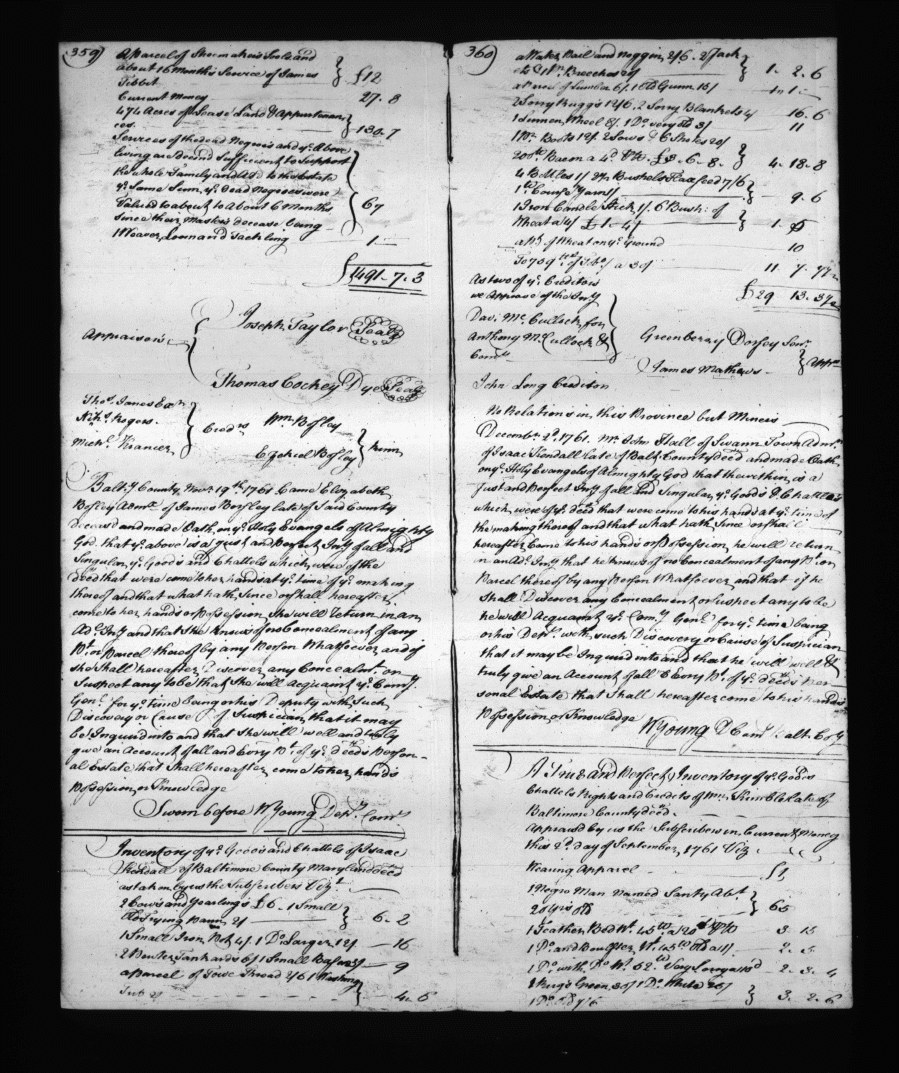 359
A Parcel of Shoemakers Tools and
about 16 Months Service of James
Tibbit £12
Current Money 27. 8
474 Acres of Leased Land & Appurtenan
ces 130. 7
Services of the dead Negroes and ye Above
living are Deemd Sufficient to Support
the whole Family and to the Estate
ye Same Sum, ye dead Negroes were
Valued to about 6 Months
Since their Masters decease being 67
1 Weavers Loom and Tackling 1
£491 - 7 - 3
Joseph Taylor Seal
Appraisors
Thomas Cockey Dye Seal
Thos. James
Nichs. Rogers Credrs Wm Bosley
Ezekiel Bosley kinn
Balto. County, Novr. 19th 1761 Came Elizabeth
Bosley Admx. of James Bosley late of Said County
deceased and made Oath, on ye Holy Evangels of Almighty
God, that ye above is a just and Perfect Invy of all and
Singular, ye Goods and Chattels which were of the
deced that were come to her hands at ye time of ye making
thereof and that what hath Since or shall hereafter
come to her hands or Possession She will return in an
Adl. Invy and that She knows of no Concealment of any
Pt. or Parcel thereof by any Person Whatsoever and if
She Shall hereafter Discover any Concealmt. or
Suspect any to be that She will Acquaint ye Comy
Genl. for ye time being or his Deputy with Such
Discovery or Cause of Suspicion, that it may
be Inquired into and that She will well and truly
give an Account of all and Every Pt. of ye deceds Person-
al Estate that Shall hereafter, come to her hands
Possession, or Knowledge
Sworn before W Young Depy. Comy
Inventory of ye Goods and Chattels of Isaac
of Baltimore County Maryland deced
as taken by us the Subscribers Vizt.
2 Cows and Yearlings £6. 1 Small
Old Frying Pann 2/ 6. 2
1 Small Iron Pot 4/. 1 Do. Larger 12/ 16
2 Pewter Tankards 6/ 1 Small Bason 3/ 9
a Parcel of Towe Thread 2/6 1 Washing
Tub 2/ 4. 6
360
a Water Pail and Noggin 2/6. 2 Jack
1 Pr. Breeches 1. 2. 6
2 Sorry Ruggs 12/6 2 Sorry Blankets 4/ 16. 6
1 Linnen Wheel 8/. 1 Do. very old 3/ 11
1 Pr. Boots 12/. 2 Sows & 6 Shoats 20/
4. 18. 8
4 Bottles 1/ 2 1/2 Bushels Flaxseed 7/6
1 lb Course Yarn 1/ 9. 6
1 Iron Candle Stick 1/. 6 Bush: of
Wheat a 4/ £1. 4/ 1. 5
of Wheat on ye Ground 10
£29 13. 3 1/2
As two of ye Creditors
we Approve of the Invy
Davd. McCulloch for
Anthony McCulloch &
Comp Greenberry Dorsey Senr.
James Mathews Apprs
John Long Creditor
No Relations in this Province but Minors
Decembr. 2d. 1761. Mr. John Hall of Swann Town Admr.
of Isaac late of Balt. County deced and made Oath
on ye Holy Evangels of Almighty God that the within is a
Just and Perfect Invy of all and Singular, ye Goods & Chattels
which were of ye deced that were come to his hands at ye time of
the making thereof and that what hath Since or shall
hereafter Come to his hands or Possession, he will return
in an Adl. Invy that he knows of no Concealment of any Pt. or
Parcel thereof by any Person Whatsoever and that if he
Shall Discover any Concealment, or Suspect any to be
he will Acquaint ye Comy. Genl. for ye time being
or his Depy. with such Discovery or Cause of Suspicion
that it may be Inquired into and that he will well &
truly give an Account of all & Every Pt. of ye deceds Per-
sonal Estate that Shall hereafter come to his hands
Possession or Knowledge
W Young D Comy Balt. Coty
A True and Perfect Inventory of ye Goods
Chattels Rights and Credits of Wm. late of
Baltimore County deced.
Appraised by us the Subscribers in Current Money
this 2d. day of September, 1761 Viz
Wearing Apparel £1,
1 Negro Man Named Santy Abt.
20 Yrs Old 65
1 Feather Bed Wt. 45 lb 3. 15
1 Do. and Boulster, Wt. 45 lb Old a 1/ 2. 5
1 Do. with Do. Wt. 52 lb Very Sorry a 10d 2. 3. 4
2 Rugs Green 35/ 1 Do. White 25/
1 Do. old 2/6 3. 2. 6